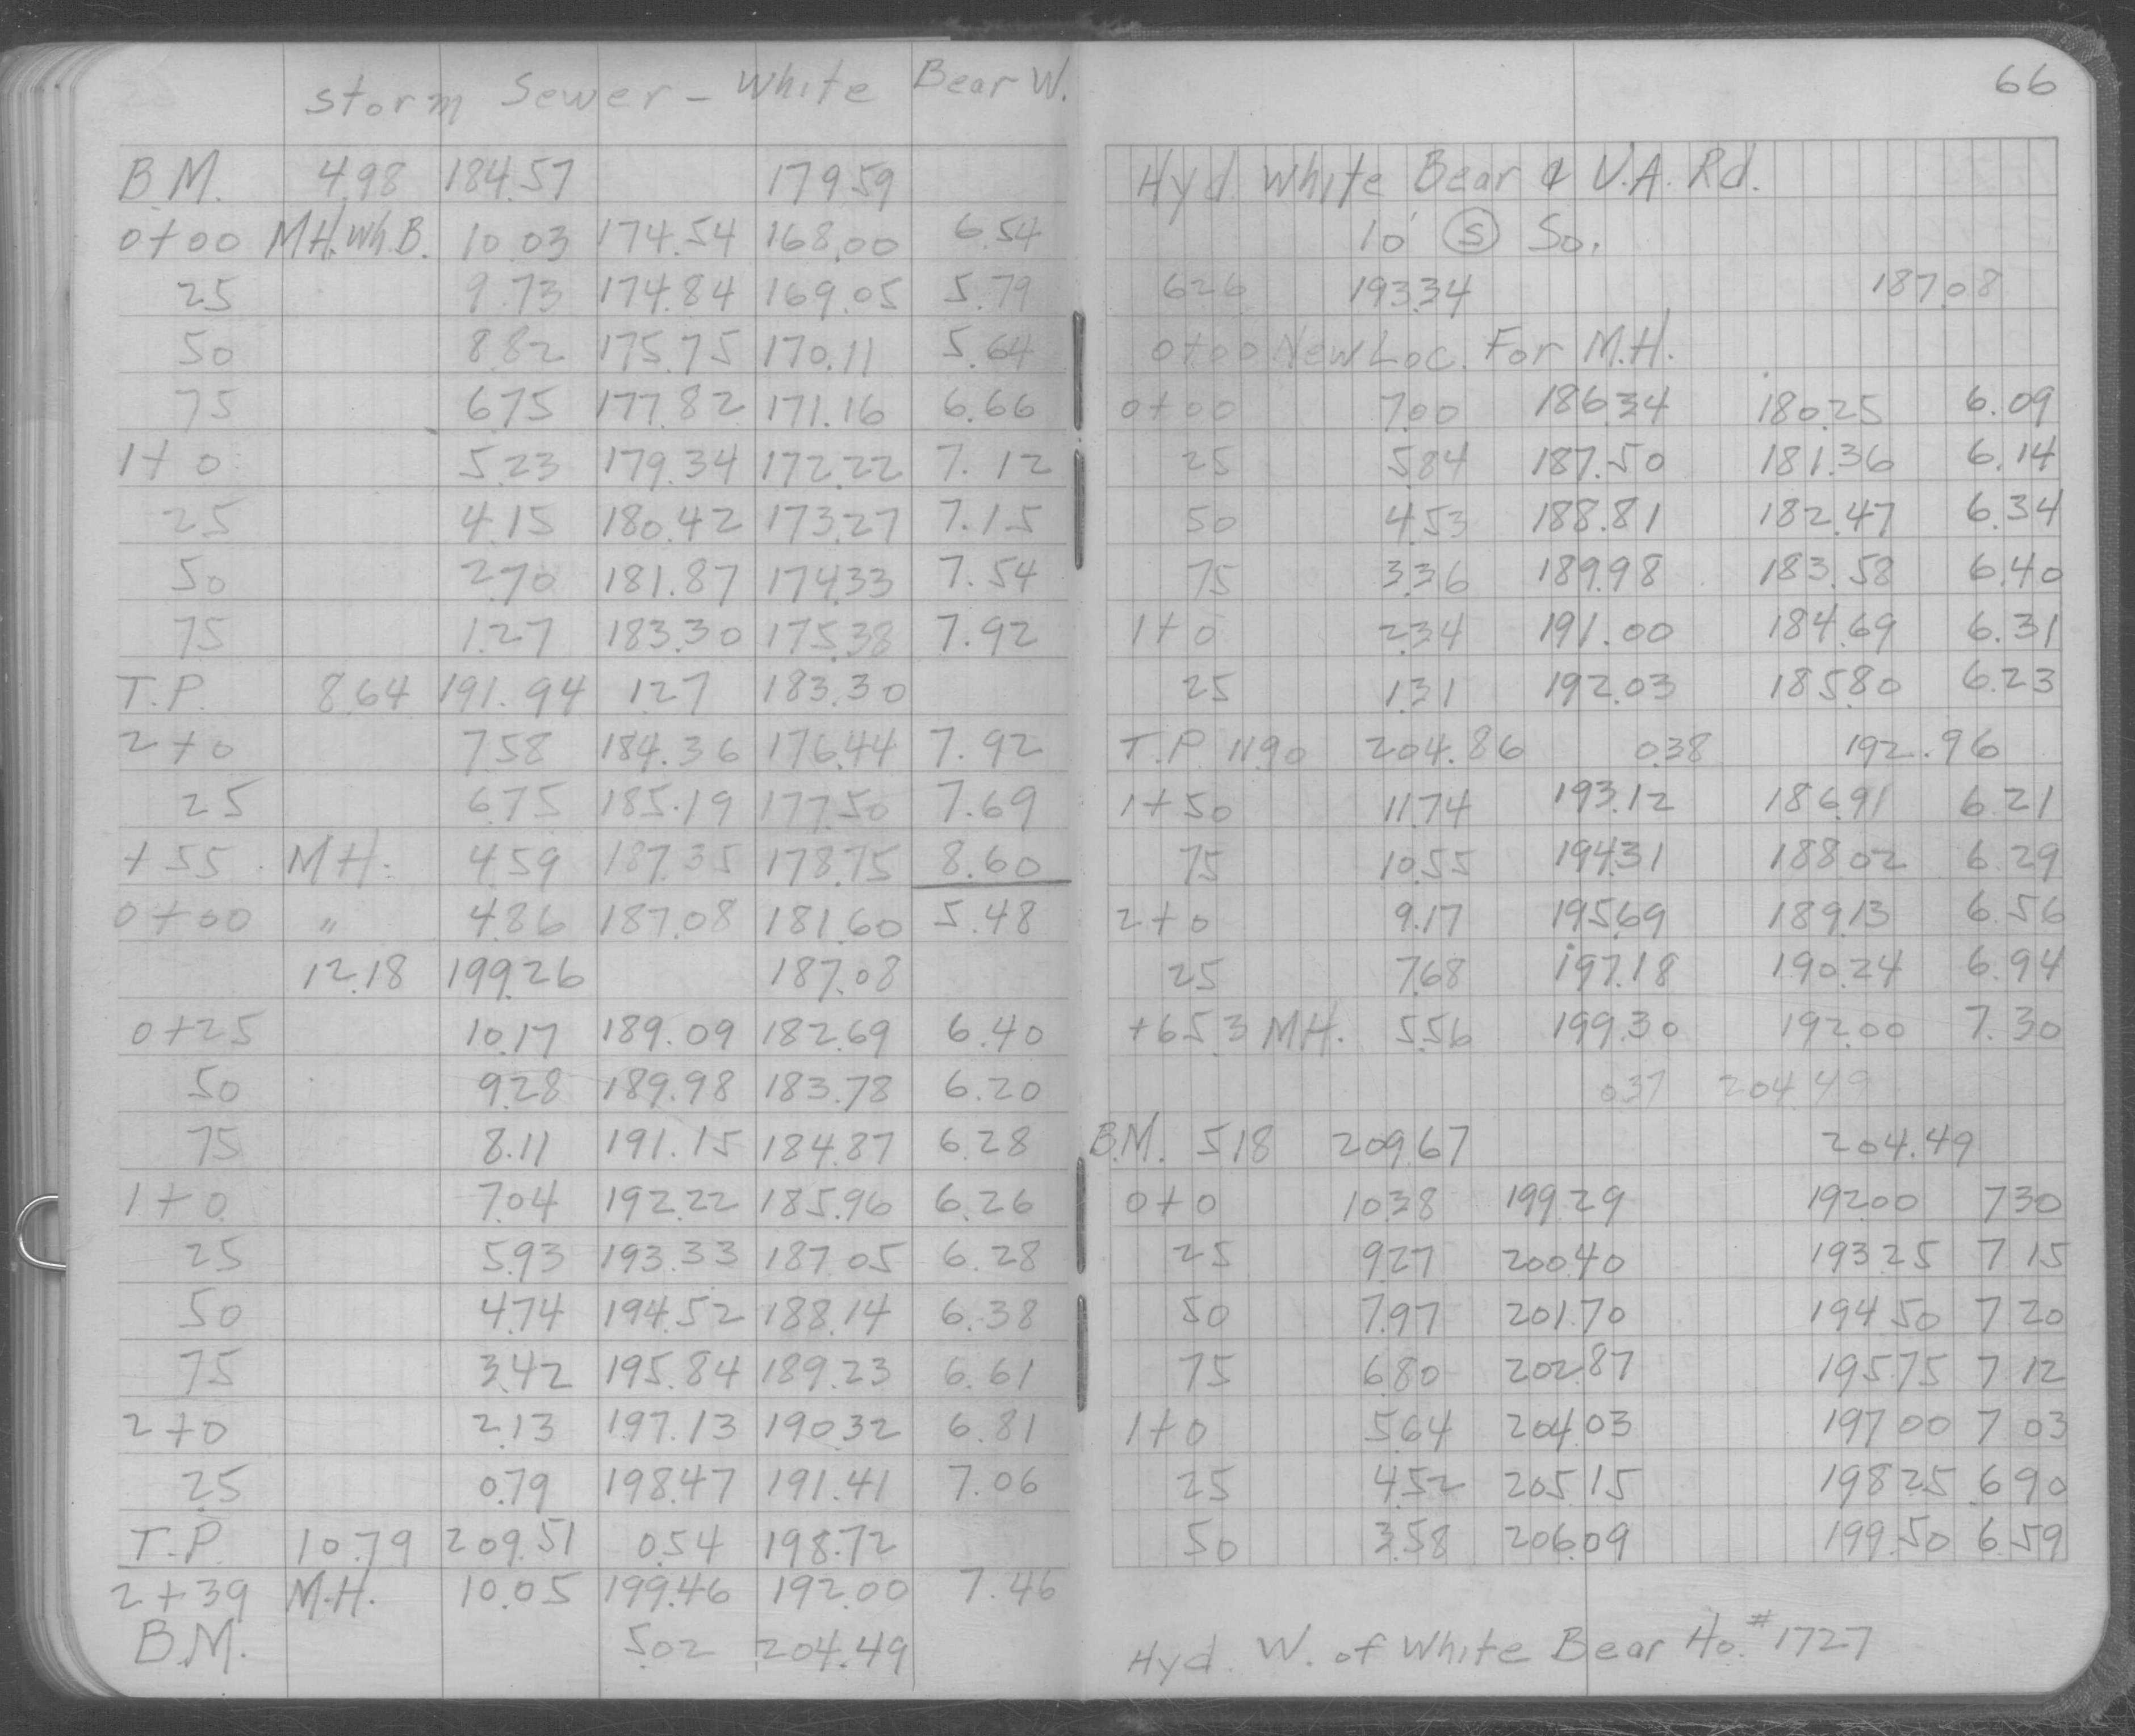 Storm Sewer - White Bear W.
B.M. 4.98 184.57 179.59
0+00 M.H. Wh.B. 10.03 174.54 168.00 6.54
25 9.73 174.84 169.05 5.79
50 8.82 175.75 170.11 5.64
75 6.75 177.82 171.16 6.66
1+0 5.23 179.34 172.22 7.12
25 4.15 180.42 173.27 7.15
50 2.70 181.87 174.33 7.54
75 1.27 183.30 175.38 7.92
T.P. 8.64 191.94 1.27 183.30
2+0 7.58 184.36 176.44 7.92
25 6.75 185.19 177.50 7.69
+55 M.H. 4.59 187.35 178.75 8.60
0+00 " 4.86 187.08 181.60 5.48
12.18 199.26 187.08
0+25 10.17 189.09 182.69 6.40
50 9.28 189.98 183.78 6.20
75 8.11 191.15 184.87 6.28
1+0 7.04 192.22 185.96 6.26
25 5.93 193.33 187.05 6.28
50 4.74 194.52 188.14 6.38
75 3.42 195.84 189.23 6.61
2+0 2.13 197.13 190.32 6.81
25 0.79 198.47 191.41 7.06
T.P. 10.79 209.51 0.54 198.72
2+39 M.H. 10.05 199.46 192.00 7.46
B.M. 5.02 204.49
66
Hyd. White Bear & V.A. Rd.
10' S So.
6.26 193.34 187.08
0+00 New Loc. For M.H.
0+00 7.00 186.34 180.25 6.09
25 5.84 187.50 181.36 6.14
50 4.53 188.81 182.47 6.34
75 3.36 189.98 183.58 6.40
1+0 2.34 191.00 184.69 6.31
25 1.31 192.03 185.80 6.23
T.P. 11.90 204.86 0.38 192.96
1+50 11.74 193.12 186.91 6.21
75 10.55 194.31 188.02 6.29
2+0 9.17 195.69 189.13 6.56
25 7.68 197.18 190.24 6.94
+65.3 M.H. 5.56 199.30 192.00 7.30
0.37 204.49
B.M. 5.18 209.67 204.49
0+0 10.38 199.29 192.00 7 30
25 9.27 200.40 193.25 7 15
50 7.97 201.70 194 50 7 20
75 6.80 202.87 195.75 7 12
1+0 5.64 204.03 197 00 7 03
25 4.52 205.15 198.25 6 90
50 3.58 206.09 199.50 6.59
Hyd. W. of White Bear Ho. # 1727